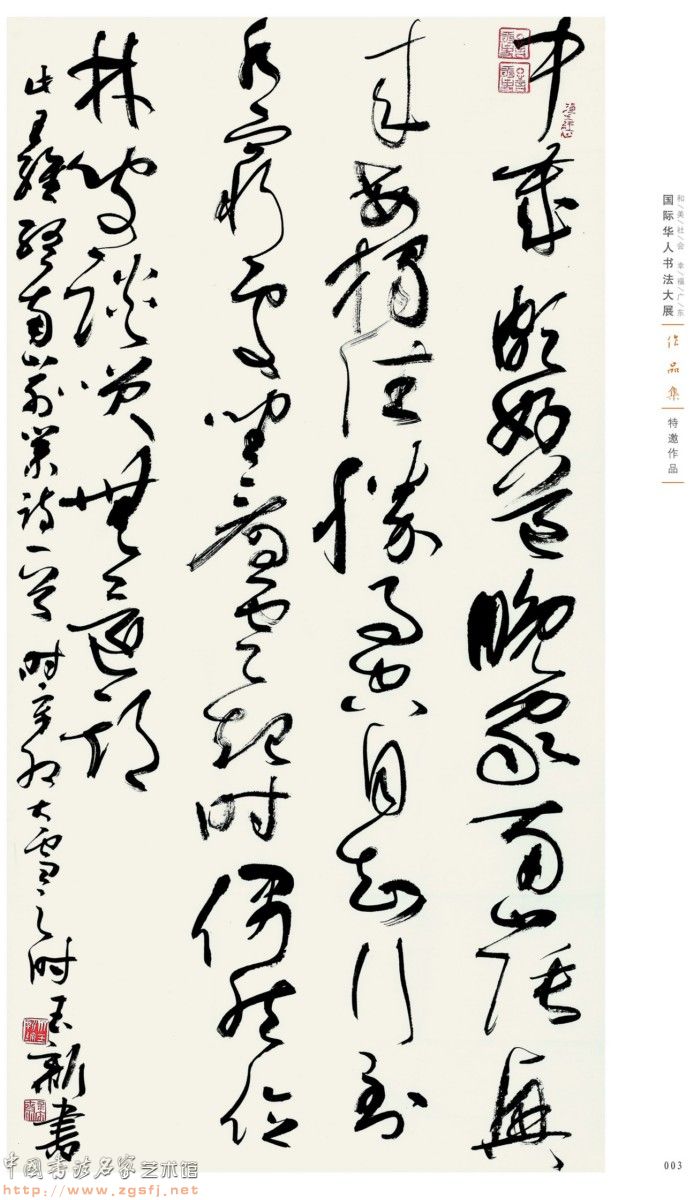 中歲頗好道晚家南山陲興
来每獨往勝事空自知行到
水窮處坐看雲起时偶然值
林叟談笑無還期
此王維終南别業詩一首 时辛卯大雪之时 新書
和/美/社/会 幸/福/广/东
国际华人书法大展
作品集
特邀作品
003
中國书法名家艺术馆
http://www.zgsfj.net